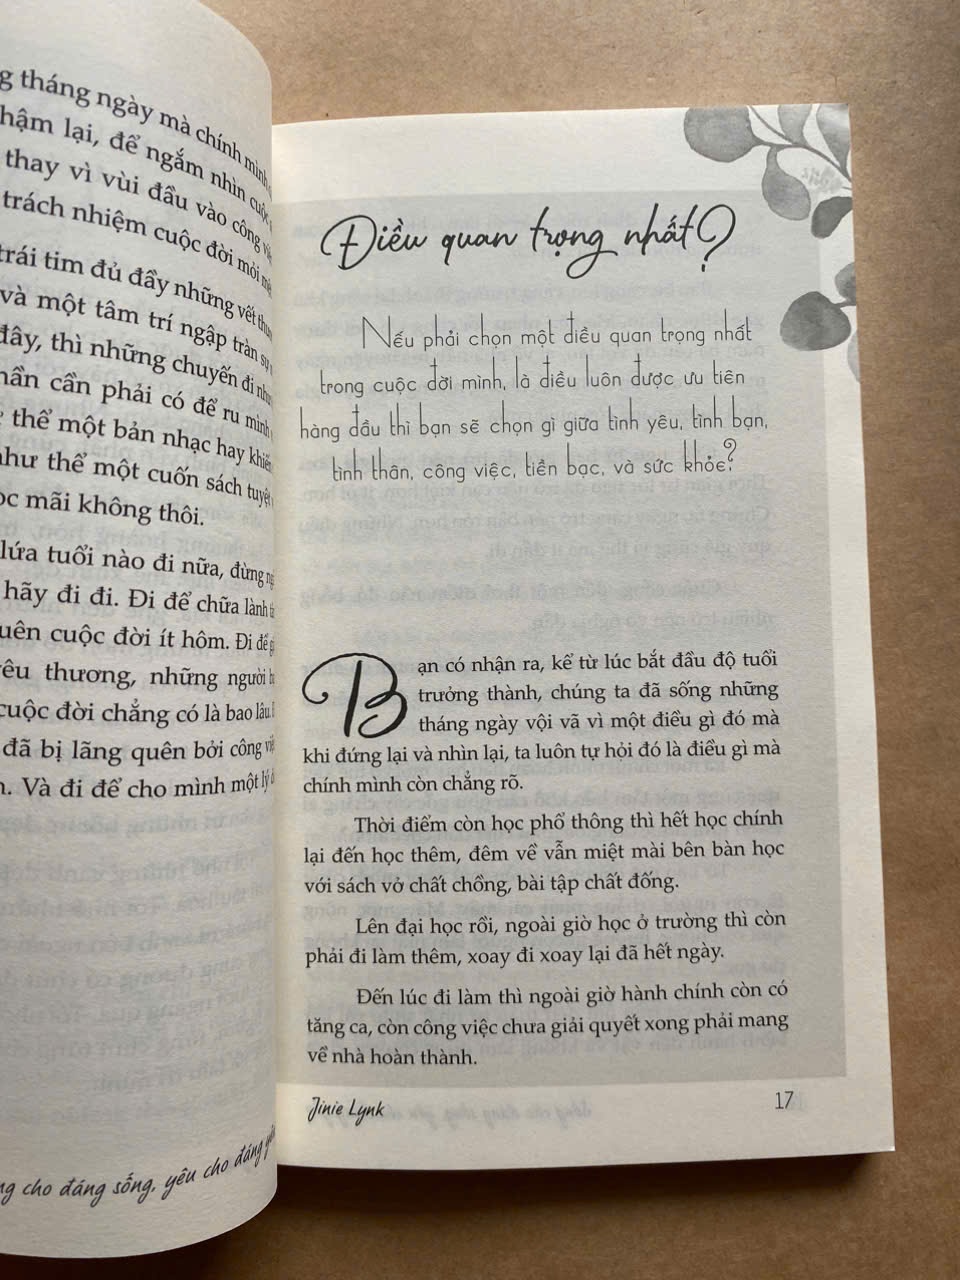 tháng ngày mà chính mình
lại, để ngắm nhìn
thay vì vùi đầu vào công
trách nhiệm cuộc đời mỏi
trái tim đủ đầy những vết
và một tâm trí ngập tràn
đây, thì những chuyến đi
cần phải có để ru mình
thể một bản nhạc hay
như thể một cuốn sách
mãi không thôi.
lứa tuổi nào đi nữa, đừng
hãy đi đi. Đi để chữa lành
cuộc đời ít hôm. Đi để
yêu thương, những người
cuộc đời chẳng có là bao lâu.
đã bị lãng quên bởi công
Và đi để cho mình một lý
cho đáng sống, yêu cho đáng
Điều quan trọng nhất?
Nếu phải chọn một điều quan trọng nhất
trong cuộc đời mình, là điều luôn được ưu tiên
hàng đầu thì bạn sẽ chọn gì giữa tình yêu, tình bạn,
tình thân, công việc, tiền bạc, và sức khỏe?
Bạn có nhận ra, kể từ lúc bắt đầu độ tuổi
trưởng thành, chúng ta đã sống những
tháng ngày vội vã vì một điều gì đó mà
khi đứng lại và nhìn lại, ta luôn tự hỏi đó là điều gì mà
chính mình còn chẳng rõ.
Thời điểm còn học phổ thông thì hết học chính
lại đến học thêm, đêm về vẫn miệt mài bên bàn học
với sách vở chất chồng, bài tập chất đống.
Lên đại học rồi, ngoài giờ học ở trường thì còn
phải đi làm thêm, xoay đi xoay lại đã hết ngày.
Đến lúc đi làm thì ngoài giờ hành chính còn có
tăng ca, còn công việc chưa giải quyết xong phải mang
về nhà hoàn thành.
Jinie Lynk
17